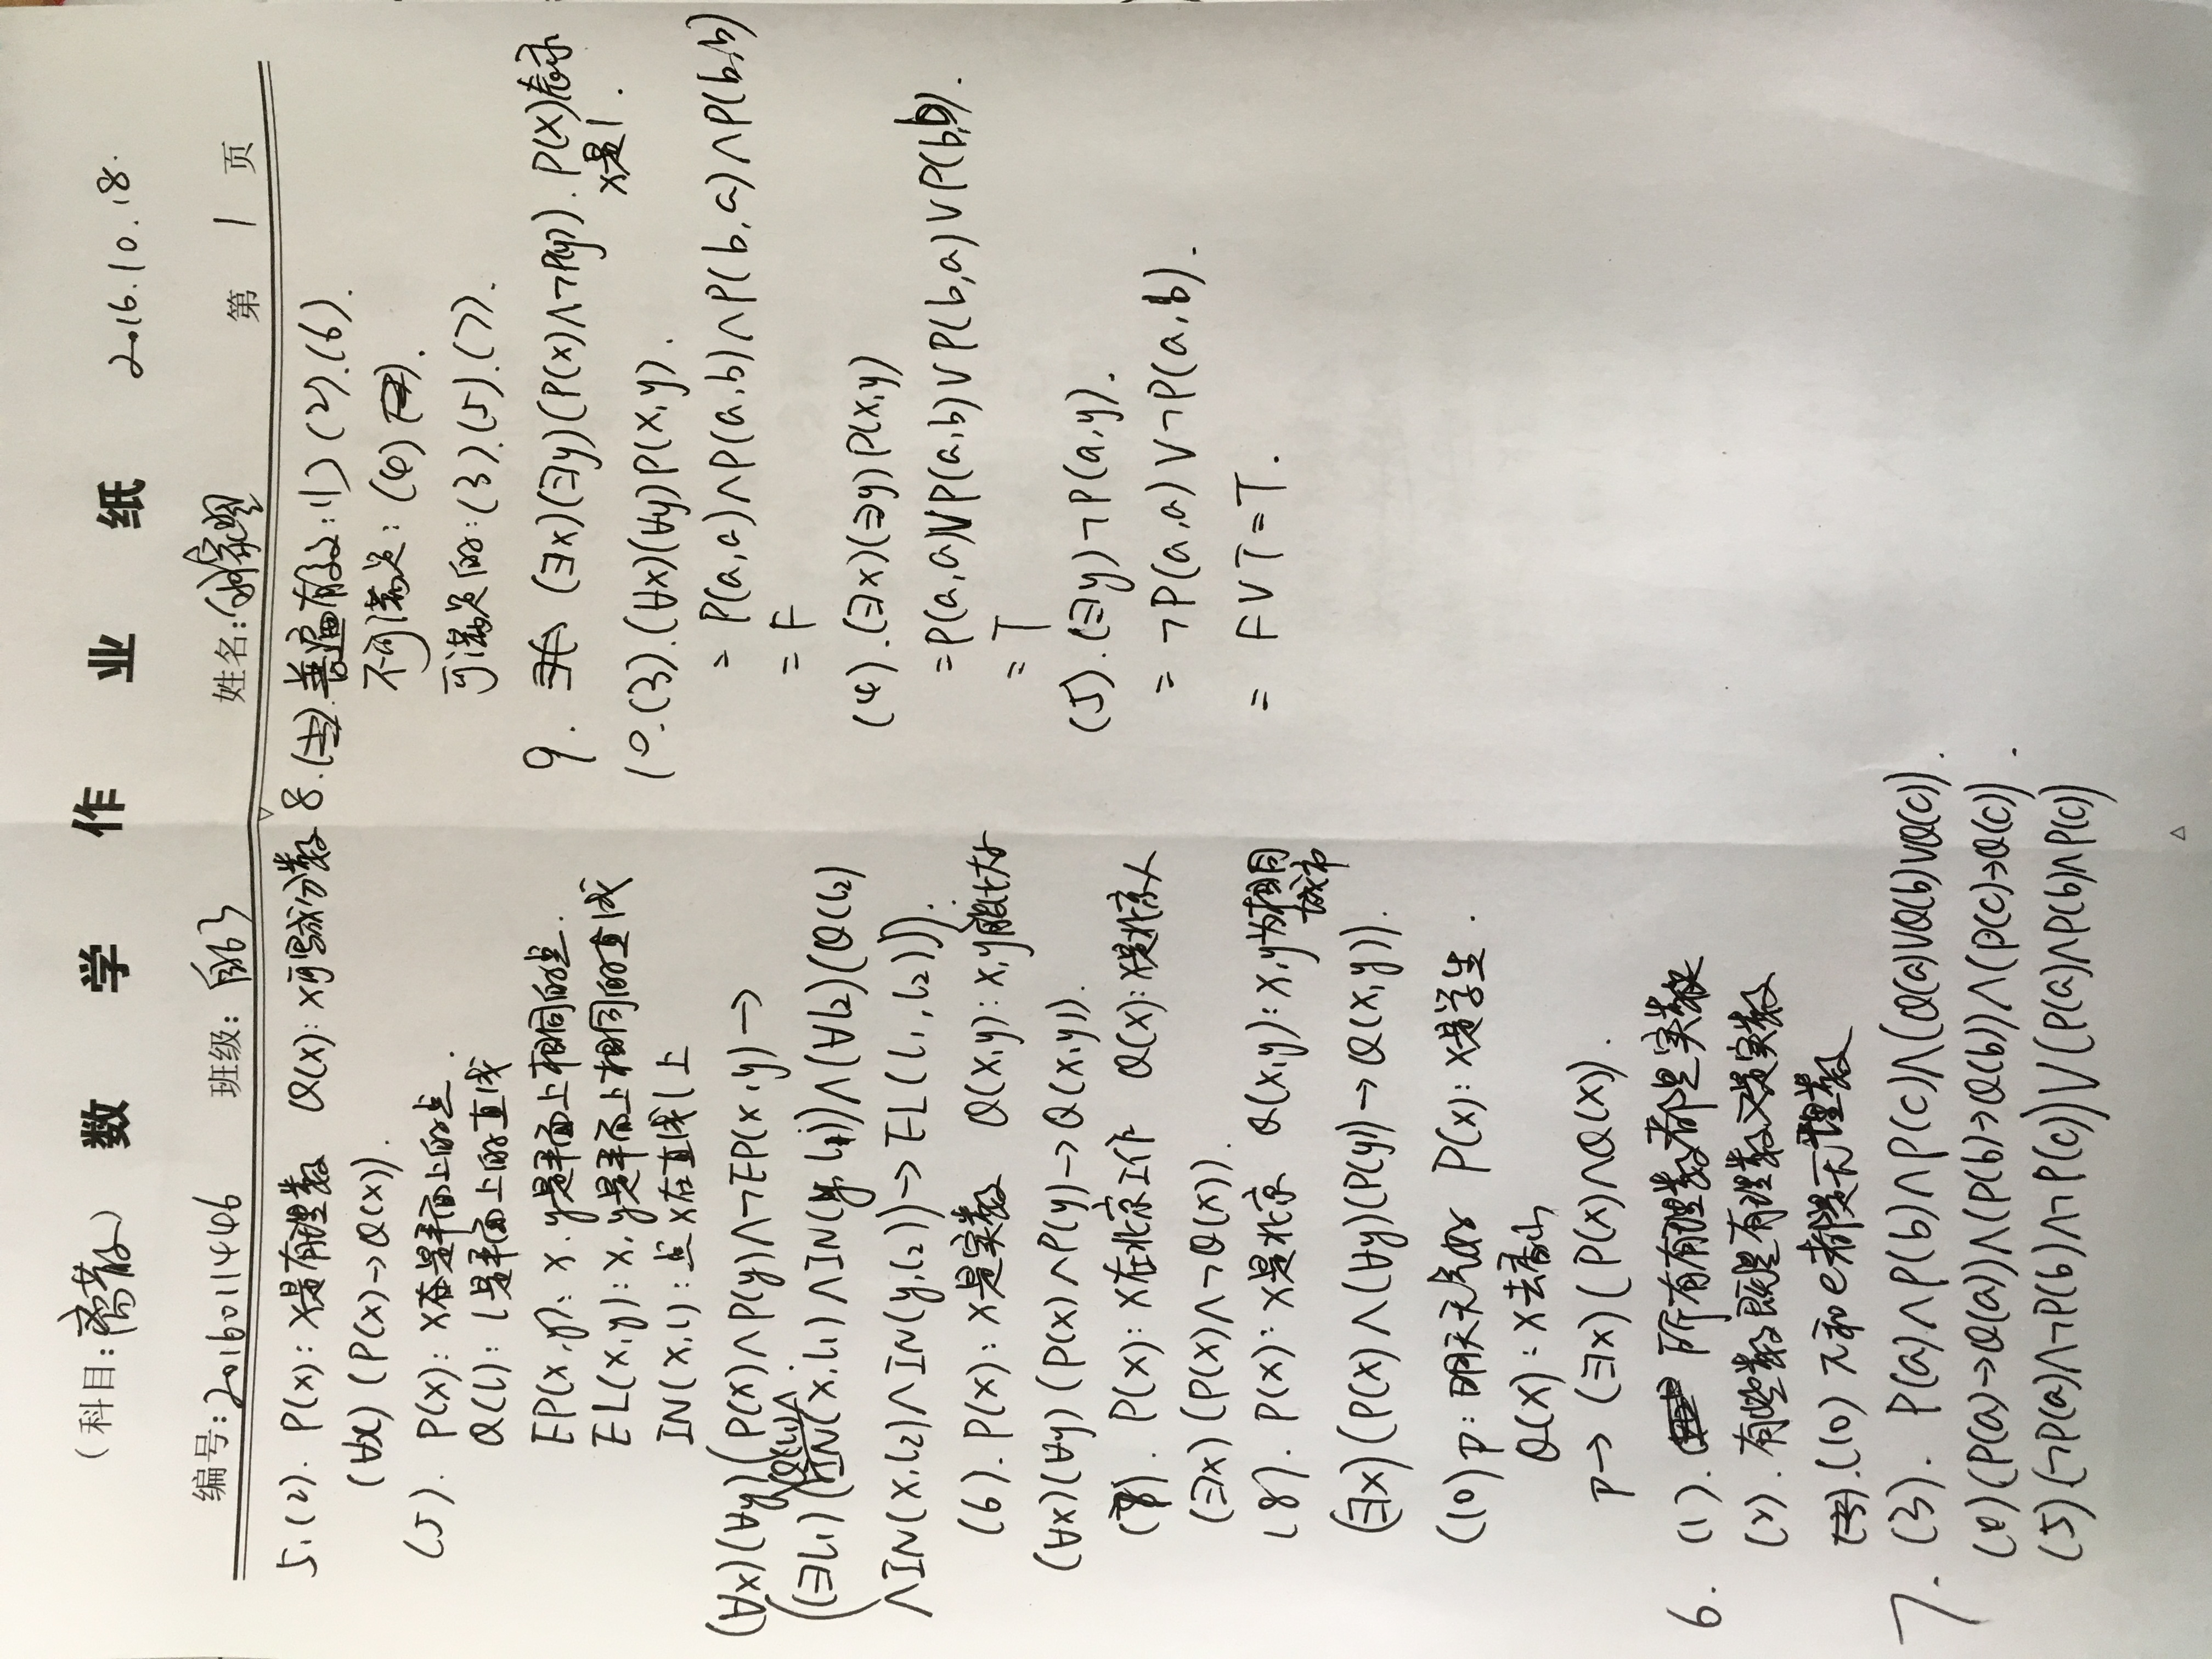 (科目:离散) 数学作业纸 2016.10.18.
编号:2016011446 班级:自63 姓名: 第1页
5.(2). P(x): x是有理数 Q(x): x可写成分数
(∀x)(P(x)→Q(x)).
(5). P(x): x是平面上的点.
Q(l): l是平面上的直线
EP(x,y): x.y是平面上相同的点.
EL(x,y): x,y是平面上相同的直线
IN(x,l): 点x在直线l上
(∀x)(∀y)(P(x)∧P(y)∧¬EP(x,y)→
((∃l₁)(Q(l₁)∧IN(x,l₁)∧IN(y,l₁))∧(∀l₂)(Q(l₂)
∧IN(x,l₂)∧IN(y,l₂))→EL(l₁,l₂))).
(6). P(x): x是实数 Q(x,y): x,y能比大小
(∀x)(∀y)(P(x)∧P(y)→Q(x,y)).
(7). P(x): x在北京工作 Q(x): x是北京人
(∃x)(P(x)∧¬Q(x)).
(8). P(x): x是北京 Q(x,y): x,y为相同
城市
(∃x)(P(x)∧(∀y)(P(y))→Q(x,y)).
(10) p: 明天天气好 P(x): x是学生.
Q(x): x去香山
p→(∃x)(P(x)∧Q(x)).
6. (1). 所有有理数都是实数
(2). 有些数既是有理数又是实数
(10) π和e都是无理数
7. (3). P(a)∧P(b)∧P(c)∧(Q(a)∨Q(b)∨Q(c)).
(4)(P(a)→Q(a))∧(P(b)→Q(b))∧(P(c)→Q(c)).
(5)(¬P(a)∧¬P(b)∧¬P(c))∨(P(a)∧P(b)∧P(c))
8. 普遍有效:(1)(2).(6).
不可满足:(4).
可满足的:(3).(5).(7).
9. (∃x)(∃y)(P(x)∧¬P(y)). P(x)表示
x是1.
10.(3).(∀x)(∀y)P(x,y).
= P(a,a)∧P(a,b)∧P(b,a)∧P(b,b)
= F
(4).(∃x)(∃y)P(x,y)
=P(a,a)∨P(a,b)∨P(b,a)∨P(b,b).
= T
(5).(∃y)¬P(a,y).
= ¬P(a,a)∨¬P(a,b).
= F∨T=T.